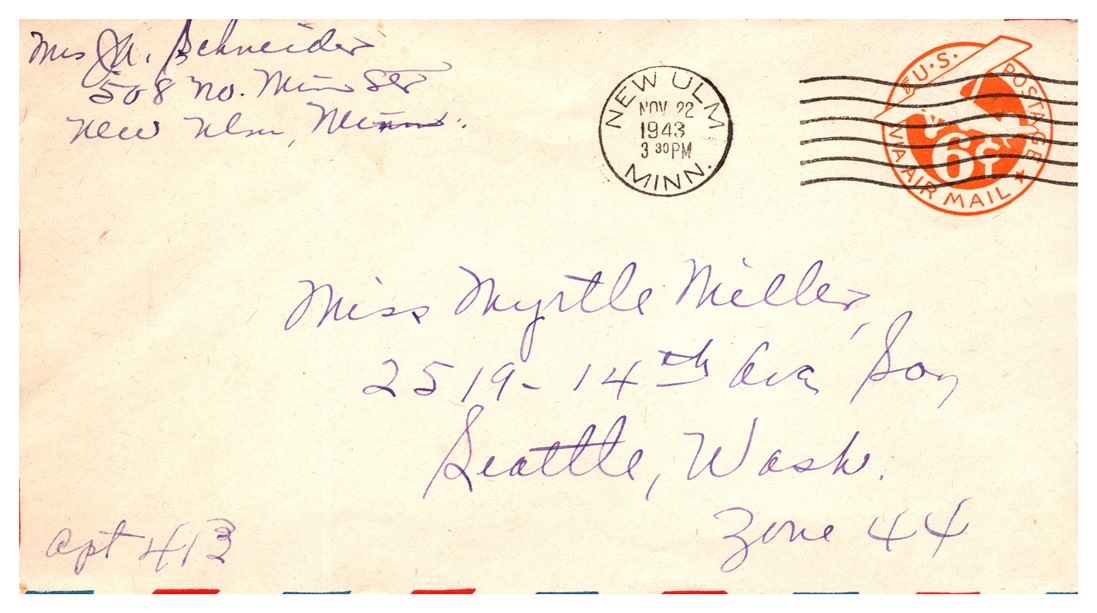 Mrs J.A. Schneider
508 No. Minn Str
New Ulm, Minn.
NEW ULM
NOV 22
1943
3 30 PM
MINN.
U.S. POSTAGE
6¢
VIA AIR MAIL
Miss Myrtle Miller,
2519 - 14th Ave So,
Seattle, Wash.
Zone 44
Apt 413